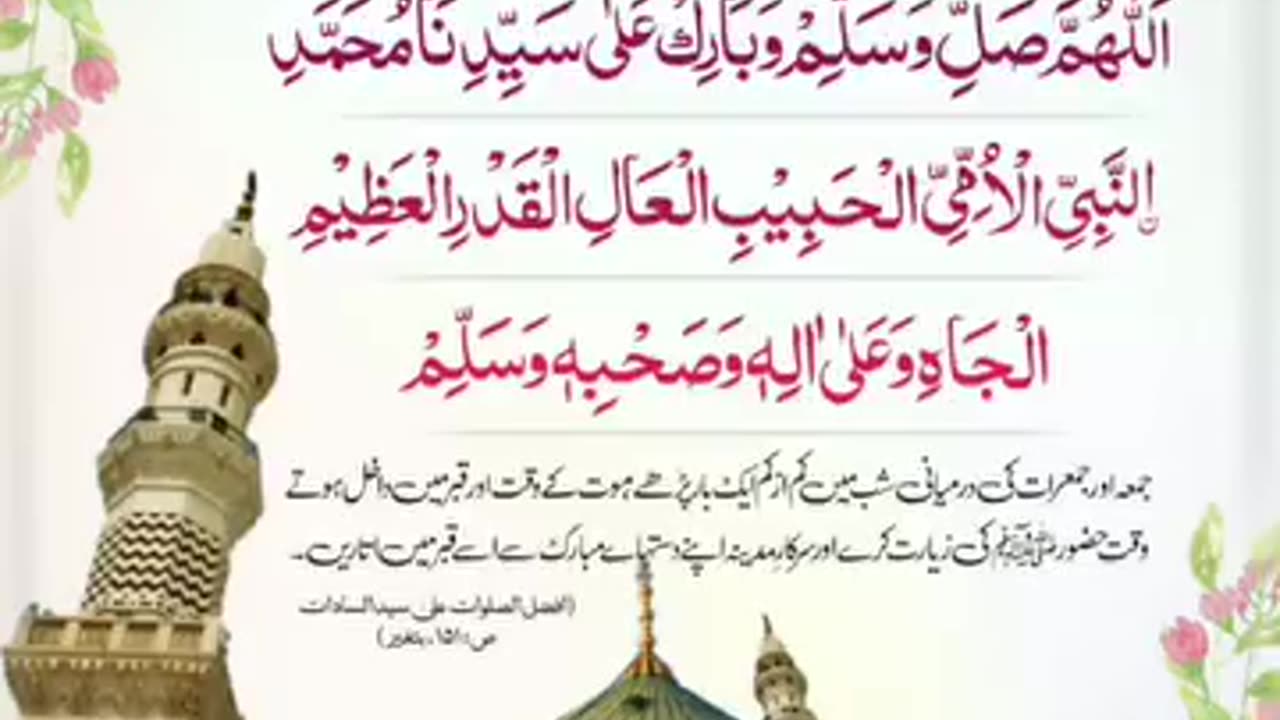 اَللّٰهُمَّ صَلِّ وَسَلِّمْ وَبَارِكْ عَلٰی سَيِّدِنَا مُحَمَّدِ
نِالنَّبِیِّ الْاُمِّیِّ الْحَبِيْبِ الْعَالِ الْقَدْرِ الْعَظِيْمِ
الْجَاهِ وَعَلٰی اٰلِهٖ وَصَحْبِهٖ وَسَلِّمْ
جمعہ اور جمعرات کی درمیانی شب میں کم از کم ایک بار پڑھے موت کے وقت اور قبر میں داخل ہوتے
وقت حضور ﷺ کی زیارت کرے اور سرکارِ مدینہ اپنے دستہائے مبارک سے اسے قبر میں اتاریں۔
(افضل الصلوات علی سید السادات
ص: ۱۵۱، بتغیر)